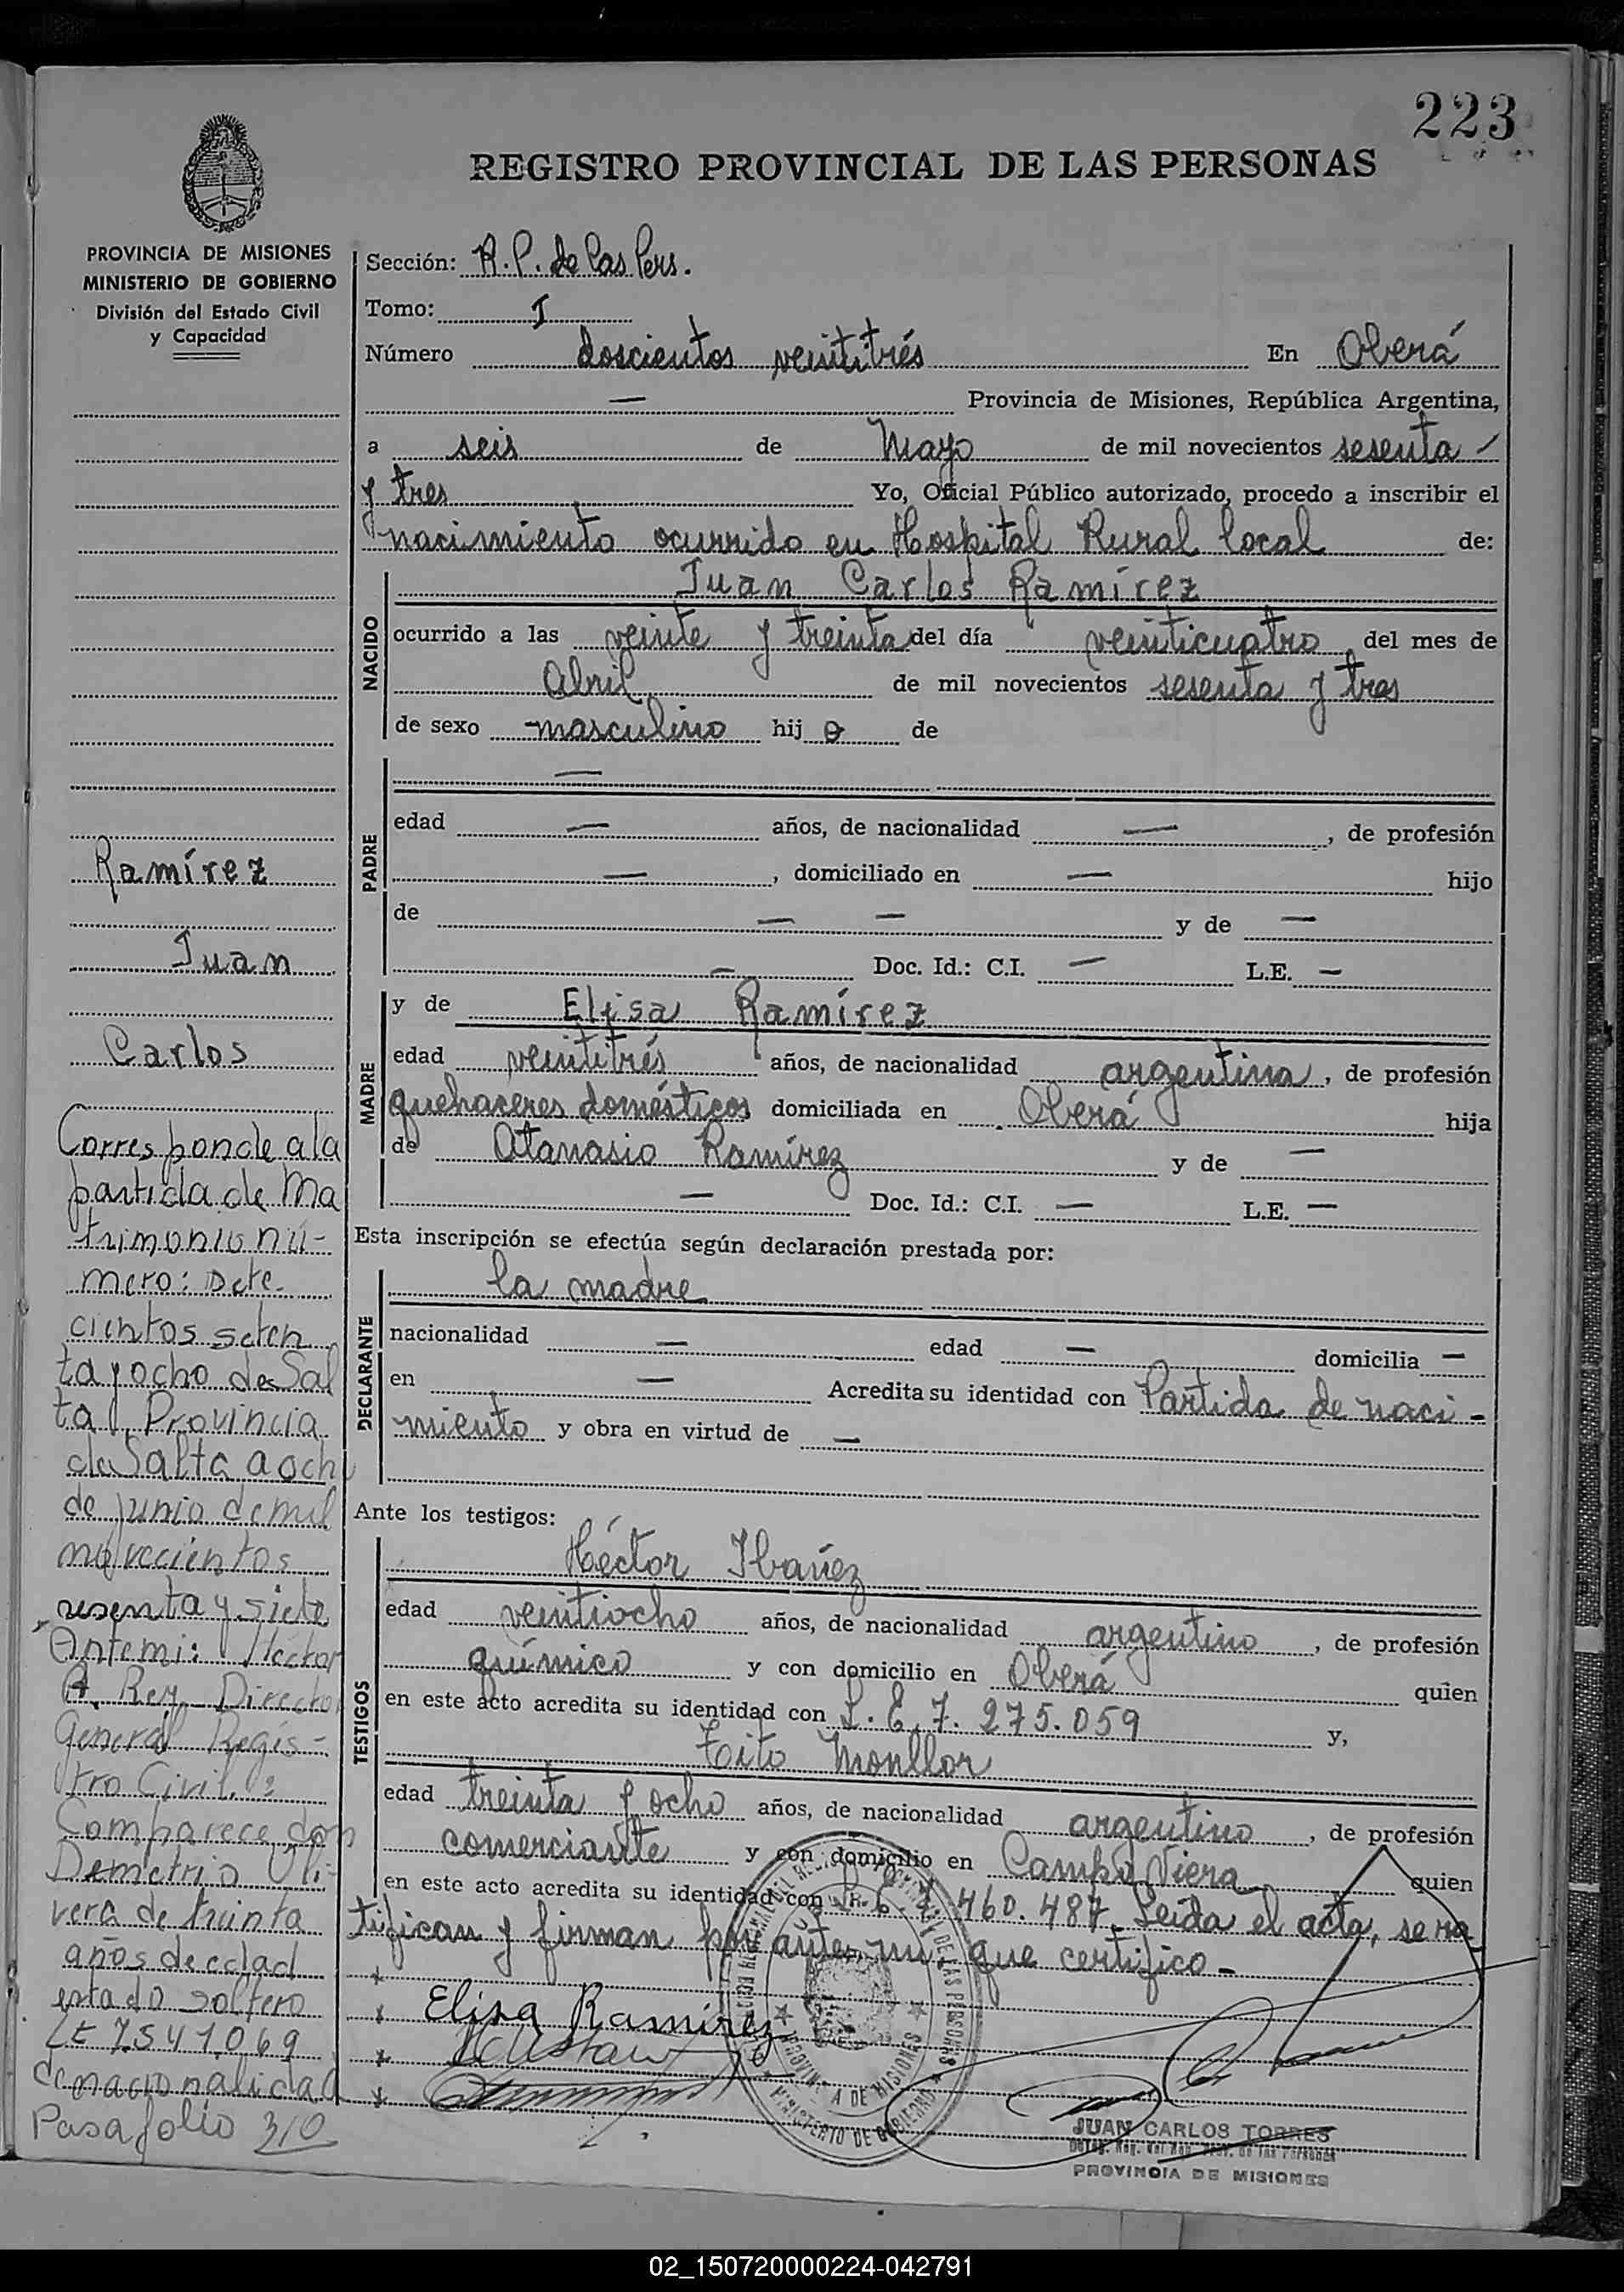 223
REGISTRO PROVINCIAL DE LAS PERSONAS
PROVINCIA DE MISIONES
MINISTERIO DE GOBIERNO
División del Estado Civil
y Capacidad
Ramírez
Juan
Carlos
Corresponde a la
partida de Ma
trimonio nú-
mero: Sete-
cientos seten
ta y ocho de Sal
ta, Provincia
de Salta a och
de junio de mil
novecientos
sesenta y siete
Ante mi: Héctor
A. Rey Director
General Regis-
tro Civil:
Comparece don
Demetrio Oli-
vera de treinta
años de edad
estado soltero
LE 7.541.069
de nacionalidad
Pasa folio 310
Sección: R. P. de las Pers.
Tomo: I
Número doscientos veintitrés En Oberá
— Provincia de Misiones, República Argentina,
a seis de Mayo de mil novecientos sesenta
y tres Yo, Oficial Público autorizado, procedo a inscribir el
nacimiento ocurrido en Hospital Rural local de:
NACIDO
Juan Carlos Ramírez
ocurrido a las veinte y treinta del día veinticuatro del mes de
Abril de mil novecientos sesenta y tres
de sexo masculino hij o de
PADRE
—
edad — años, de nacionalidad —, de profesión
—, domiciliado en — hijo
de — — y de —
— Doc. Id.: C.I. — L.E. —
MADRE
y de Elisa Ramírez
edad veintitrés años, de nacionalidad argentina, de profesión
quehaceres domésticos domiciliada en Oberá hija
de Atanasio Ramírez y de —
— Doc. Id.: C.I. — L.E. —
Esta inscripción se efectúa según declaración prestada por:
DECLARANTE
la madre
nacionalidad — edad — domicilia —
en — Acredita su identidad con Partida de naci-
miento y obra en virtud de —
Ante los testigos:
TESTIGOS
Héctor Ibañez
edad veintiocho años, de nacionalidad argentino, de profesión
químico y con domicilio en Oberá quien
en este acto acredita su identidad con L. E. 7. 275.059 y,
Tito Monllor
edad treinta y ocho años, de nacionalidad argentino, de profesión
comerciante y con domicilio en Campo Viera quien
en este acto acredita su identidad con 460.487. Leída el acta, se ra
tifican y firman por ante mi, que certifico-
Elisa Ramírez
PROVINCIA DE MISIONES
MINISTERIO DE GOBIERNO
JUAN CARLOS TORRES
PROVINCIA DE MISIONES
02_150720000224-042791